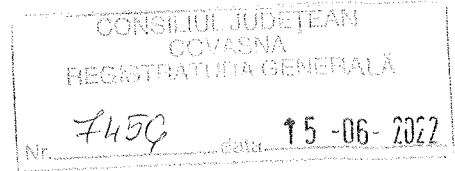 CONSILIUL JUDEȚEAN
COVASNA
REGISTRATURA GENERALĂ
Nr. 7459 data 15-06-2022